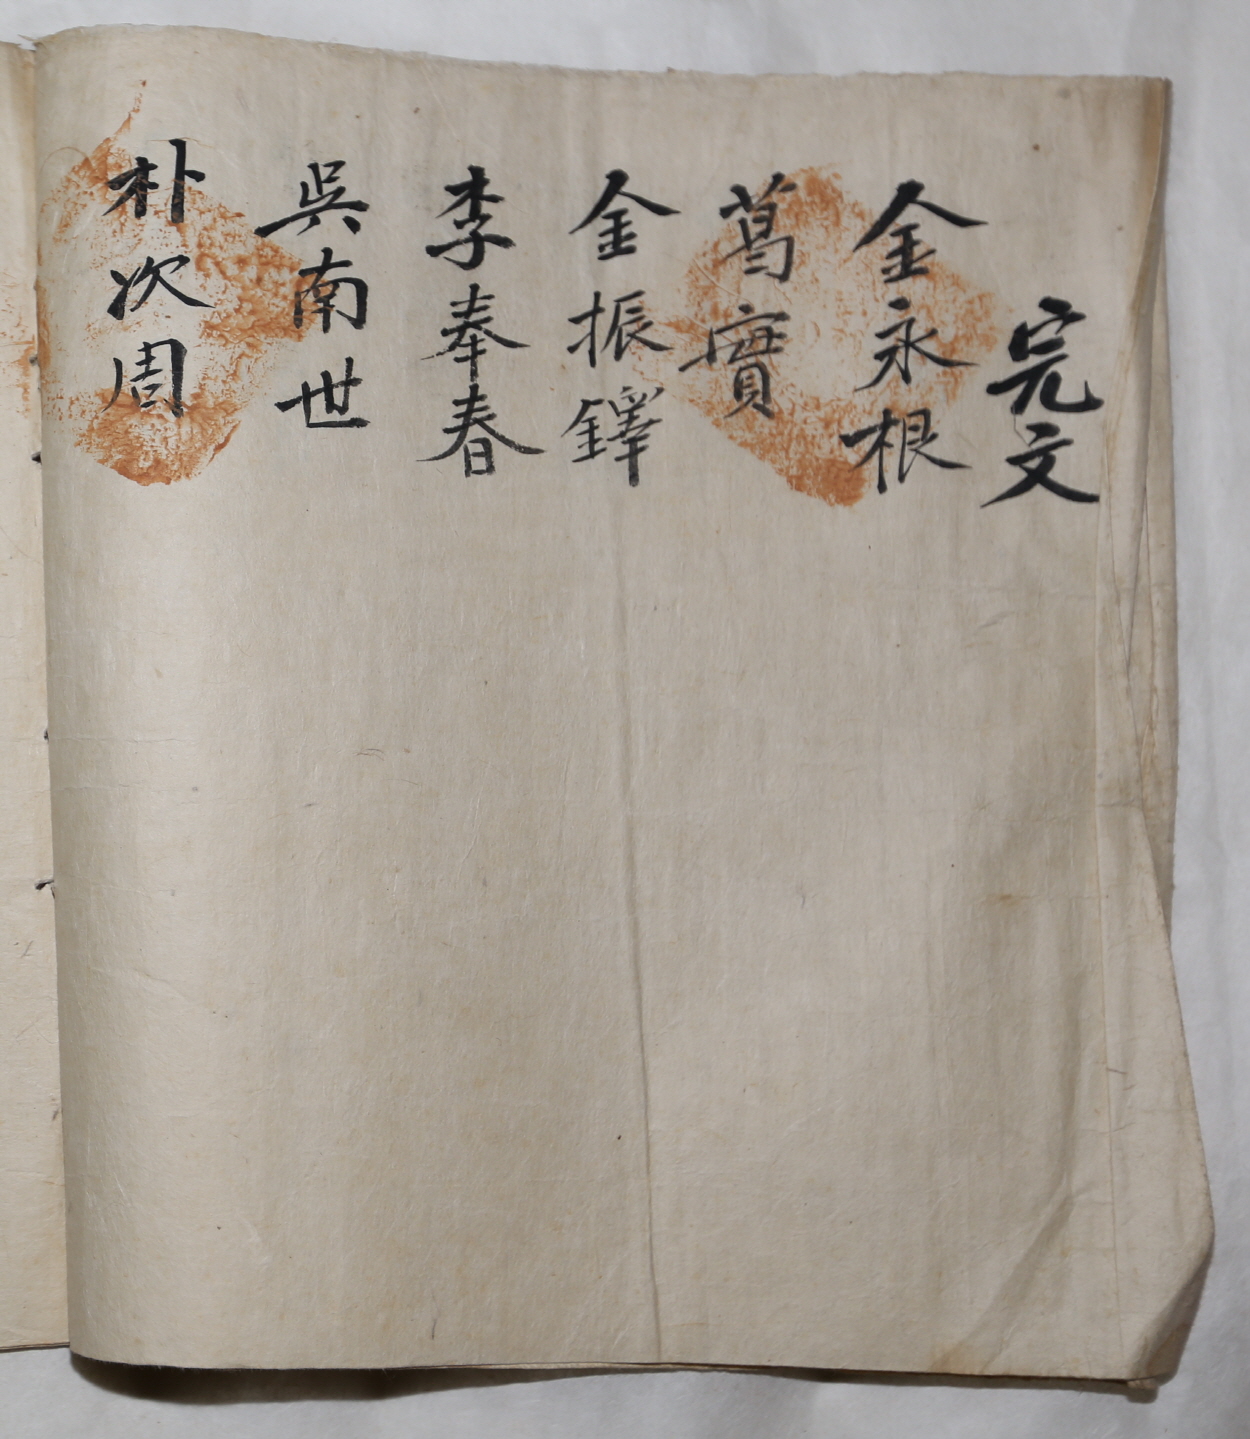 完文
金永根
葛實
金振鐸
李奉春
吳南世
朴次周